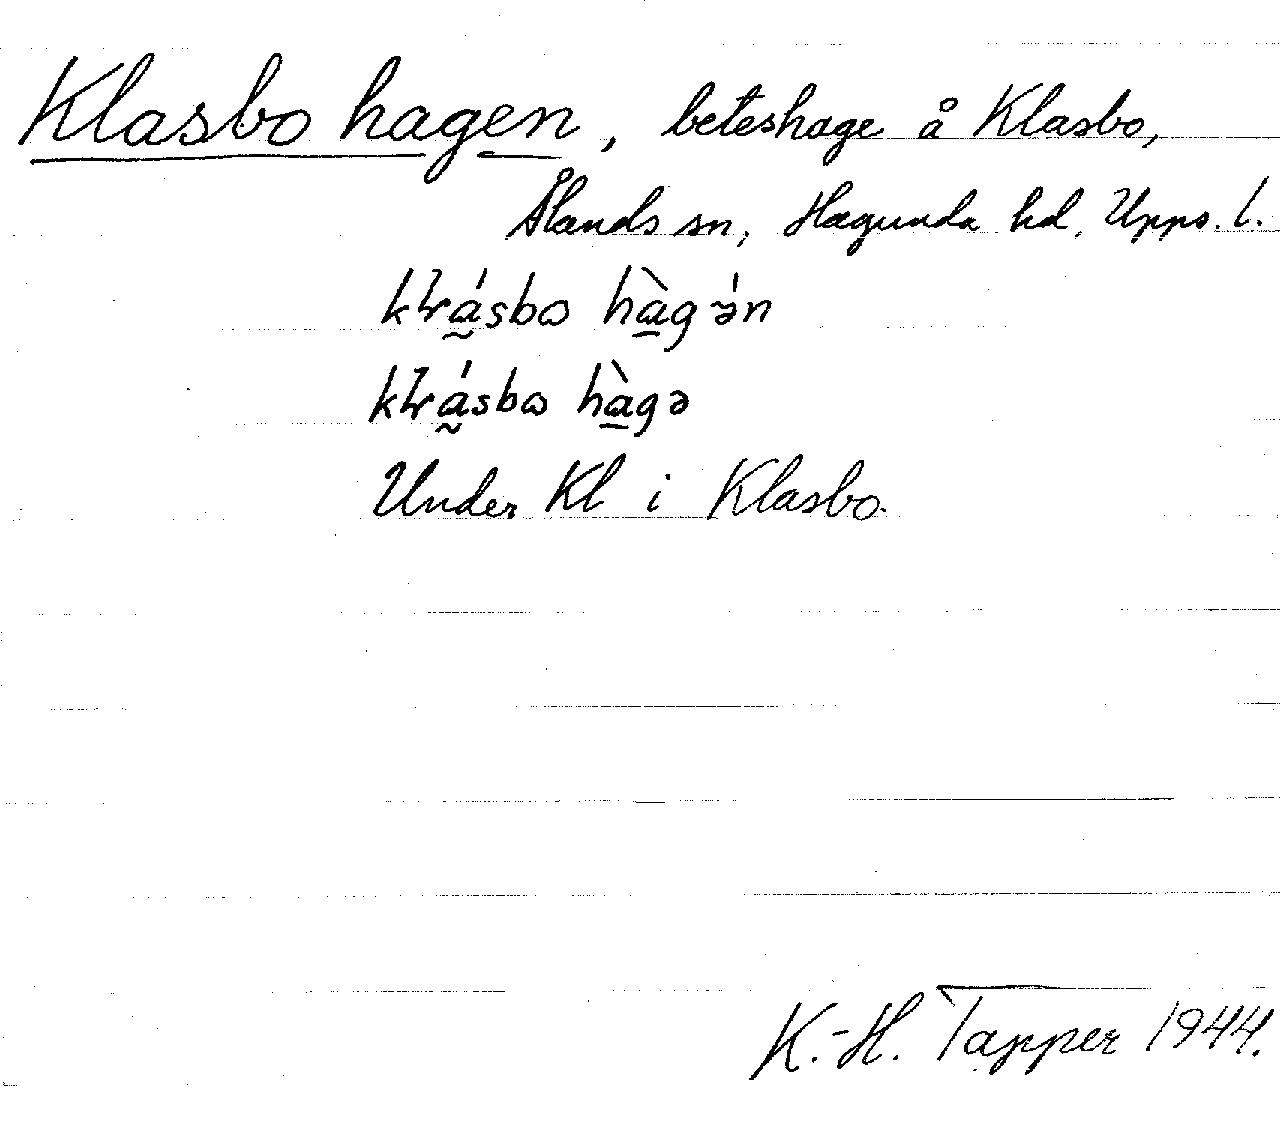 Klasbo hagen, beteshage å Klasbo,
Ålands sn, Hagunda hd, Upps. l.
kɫá̰sbɷ hà̱gə́n
kɫá̰sbɷ hà̱gə
Under Kl i Klasbo.
K.-H. Tapper 1944.